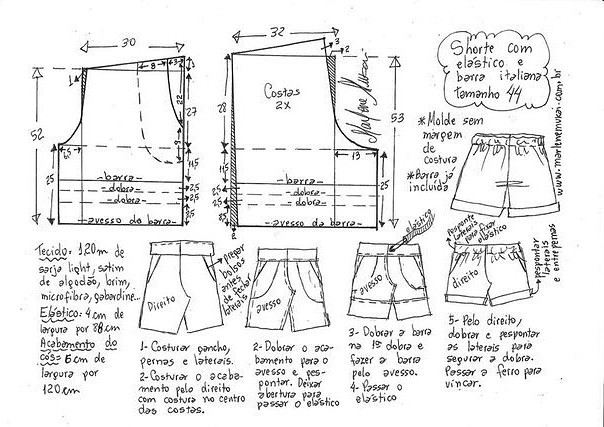 30
32
Shorte com
elástico e
barra italiana
tamanho 44
*Molde sem
márgem
de
costura
*Barra já
incluída
www.marlenemukai.com.br
Marlene Mukai
Costas
2X
3
2
1
8
3
22
27
9
52
6,5
11,5
25
2,5
2,5
28
53
13
11,5
25
25
2,5
8,5
2
-barra-
-dobra-
-dobra-
-avesso da barra-
-barra-
-dobra-
-dobra-
-avesso da barra-
Tecido: 1,20m de
sarja light, satim
de algodão, brim,
microfibra, gabardine...
Elástico: 4cm de
largura por 88cm
Acabamento do
cós- 6cm de
largura por
120cm
Direito
pregar
bolsos
antes
de fechar
laterais
avesso
elástico
avesso
Pesponte
laterais
para fixar
elástico
direito
pespontar
laterais
e entrepernas
1- Costurar gancho,
pernas e laterais.
2- Costurar o acaba-
mento pelo direito
com costura no centro
das costas.
2- Dobrar o aca-
bamento para o
avesso e pes-
pontar. Deixar
abertura para
passar o elástico
3- Dobrar a barra
na 1ª dobra e
fazer a barra
pelo avesso.
4- Passar o
elástico
5- Pelo direito,
dobrar e pespontar
as laterais para
segurar a dobra.
Passar a ferro para
vincar.